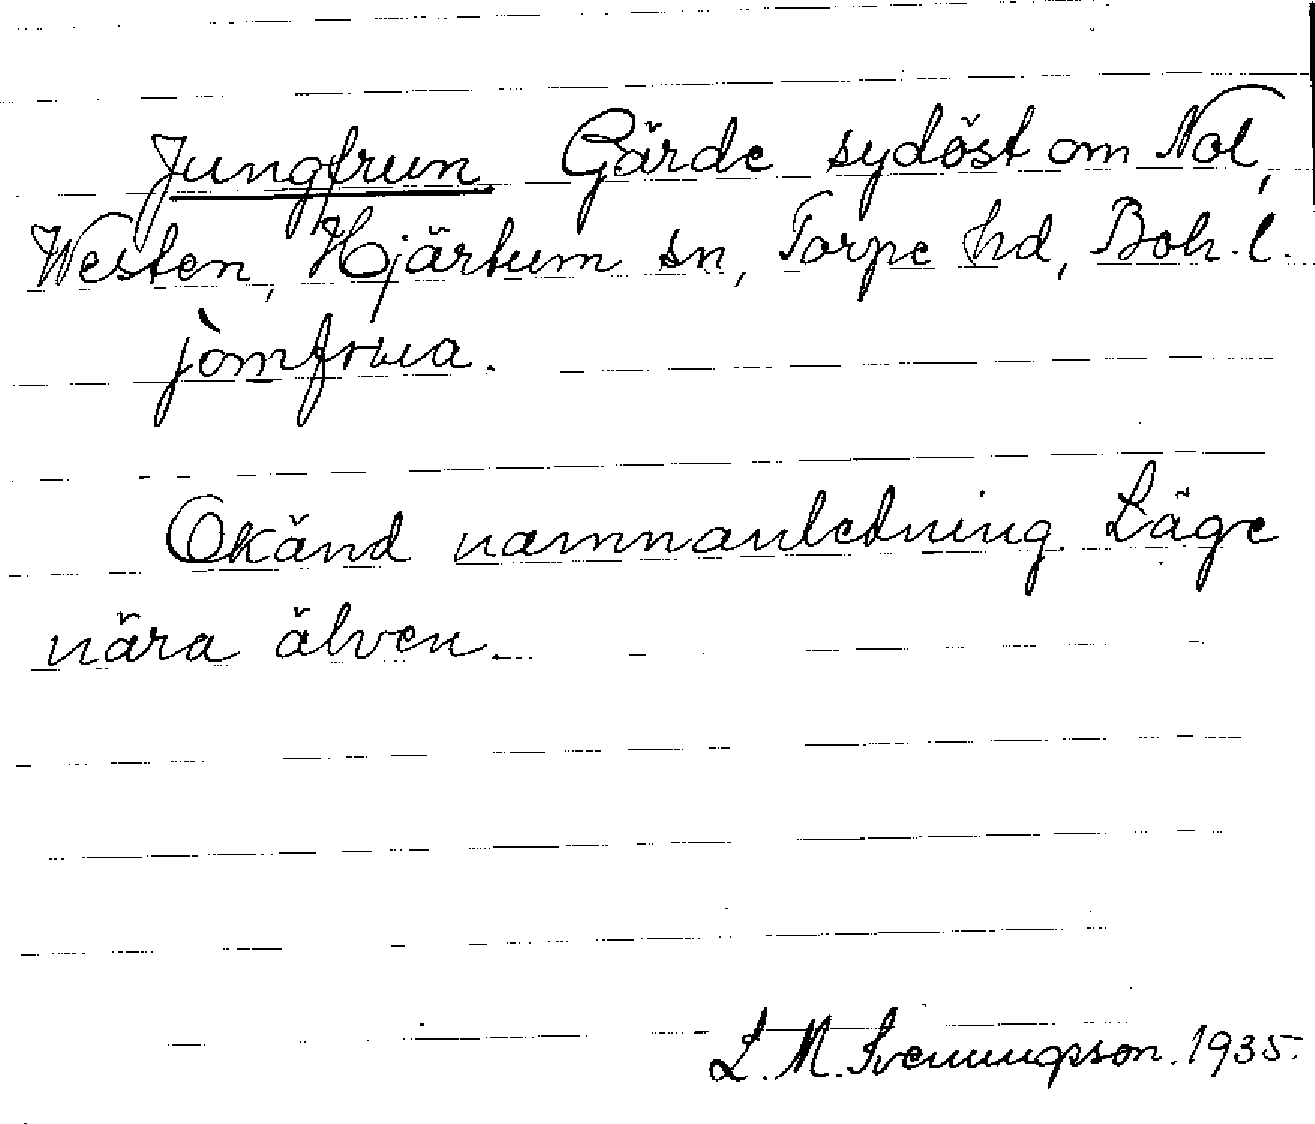 Jungfrun Gärde sydöst om Nol,
Westen, Hjärtum sn, Torpe hd, Boh. l.
jòmfrua.
Okänd namnanledning. Läge
nära älven.
L. M. Svenungsson. 1935.